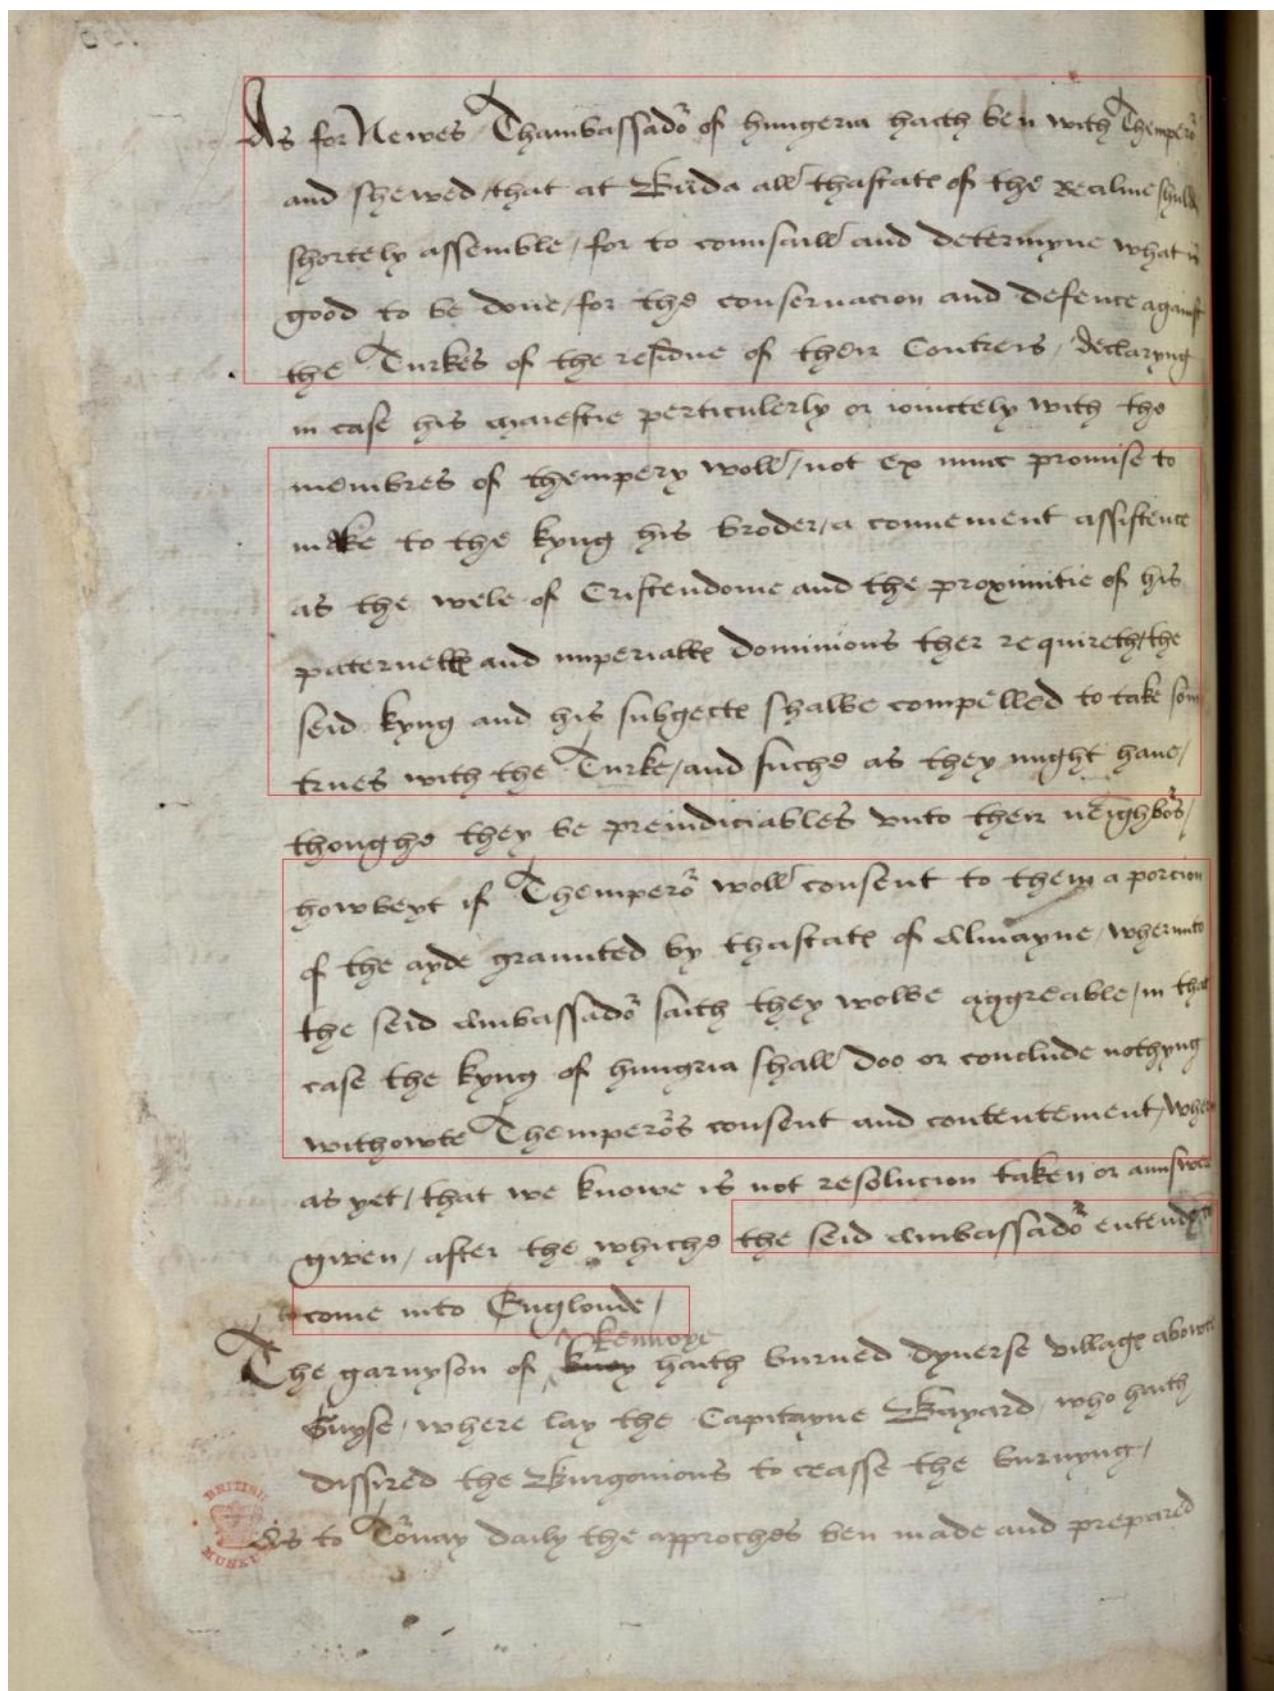 As for Newes Thambassador of hungeria haith ben with Themperor
and shewed / that at Buda all thastates of the Realme shuld
shortely assemble / for to counsaill and determyne what is
good to be done / for the conseruacion and defence against
the Turkes of the residue of their Contreis / declaryng
in case his maiestie perticulerly or ioinctely with the
membres of thempery woll / not ex nunc promise to
make to the kyng his broder / a conuenient assistence
as the wele of Cristendome and the proximitie of his
paternelles and imperialles dominions ther requireth / the
seid kyng and his subgectes shalbe compelled to take som
trues with the Turke / and suche as they might haue /
thoughe they be preiudiciables vnto their neighbors /
howbeyt if Themperor woll consent to them a porcion
of the ayde graunted by thastates of Almayne / wherunto
the seid Ambassador saith they wolbe aggreable / in that
case the kyng of hungria shall doo or conclude nothyng
withowte Themperors consent and contentement /
as yet / that we knowe is not resolucion taken or aunswer
given / after the whiche the seid Ambassador entendeth
to come into Englonde /
kennoye
The garnyson of haith burned dyuerse villages abowte
Guyse / where lay the Capitayne Bayard / who haith
dissired the Burgonions to ceasse the burnyng /
As to Tornay daily the approches ben made and prepared
BRITISH
MUSEUM